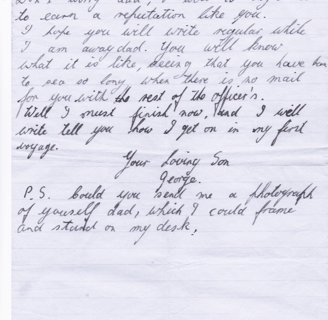 to earn a reputation like you.
I hope you will write regular while
I am away dad. You will know
what it is like, being that you have been
to sea so long when there is no mail
for you with the rest of the officer's.
Well I must finish now, and I will
write tell you how I get on in my first
voyage.
Your Loving Son
George.
P.S. Could you send me a photograph
of yourself dad, which I could frame
and stand on my desk.